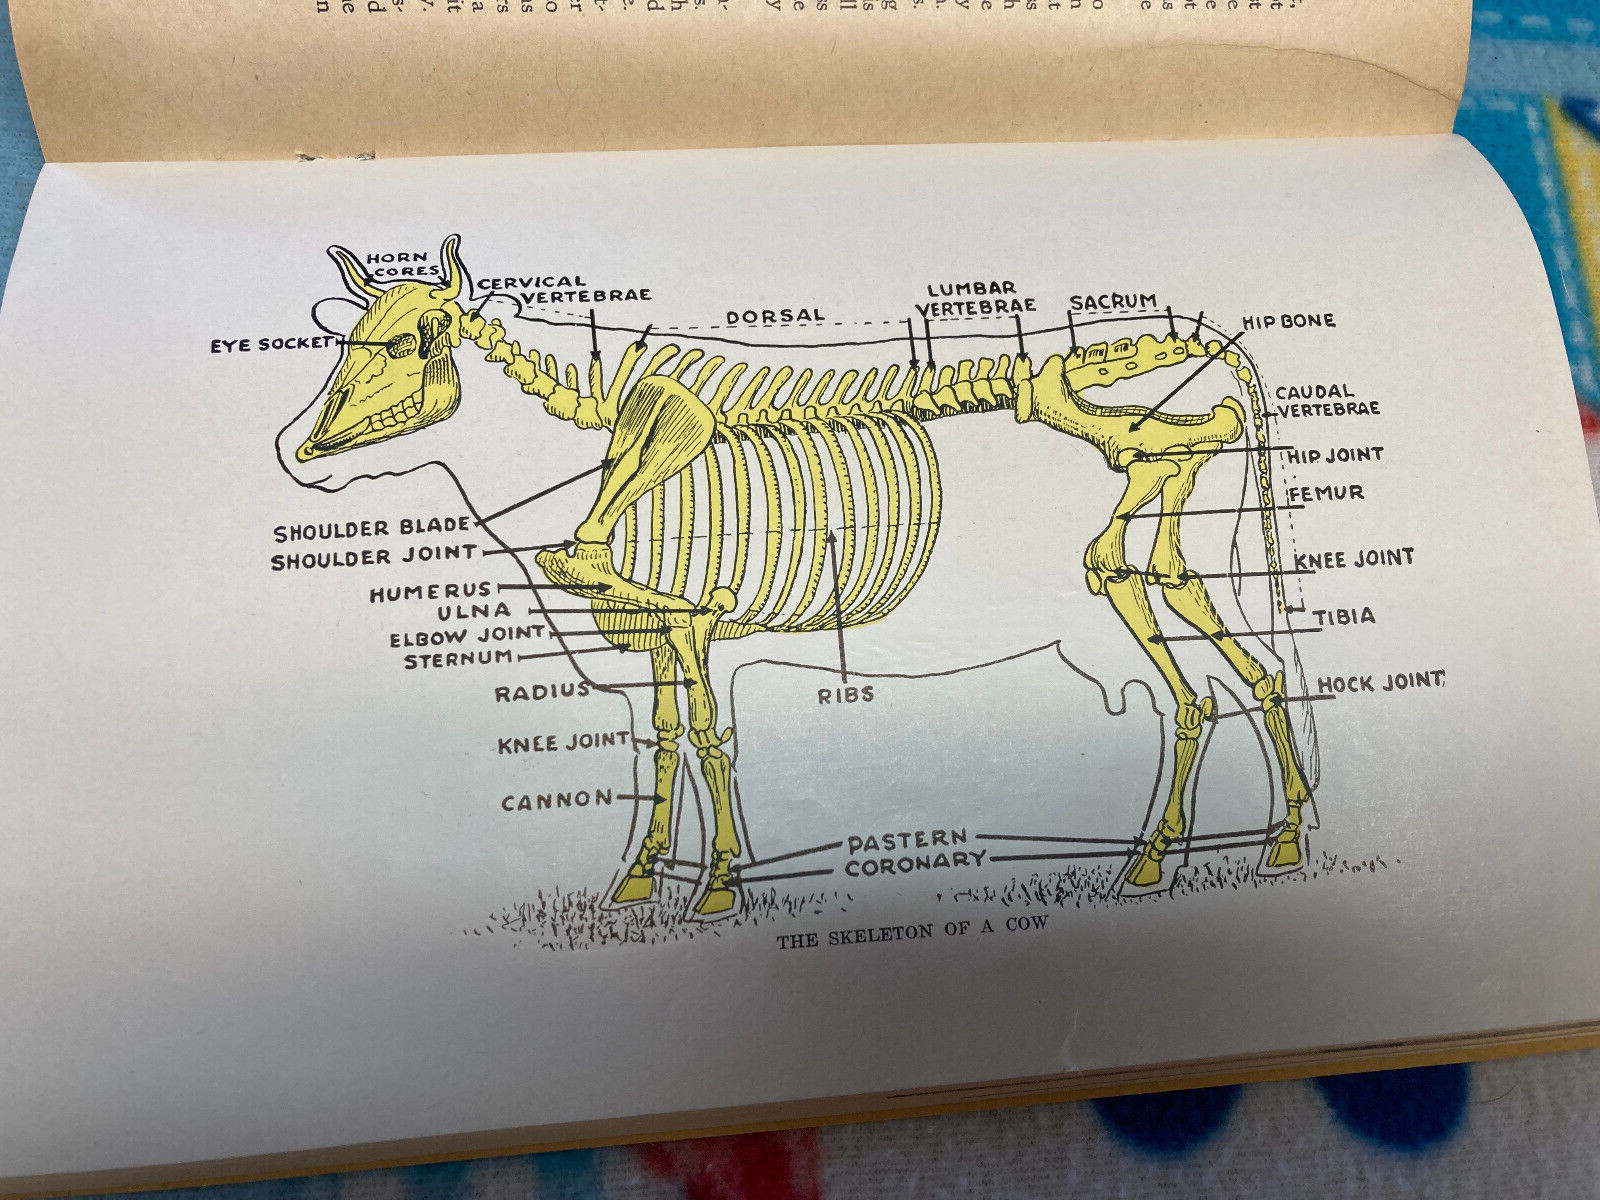 HORN
CORES
CERVICAL
VERTEBRAE
DORSAL
LUMBAR
VERTEBRAE
SACRUM
HIP BONE
EYE SOCKET
CAUDAL
VERTEBRAE
HIP JOINT
FEMUR
SHOULDER BLADE
SHOULDER JOINT
KNEE JOINT
HUMERUS
ULNA
TIBIA
ELBOW JOINT
STERNUM
RADIUS
RIBS
HOCK JOINT
KNEE JOINT
CANNON
PASTERN
CORONARY
THE SKELETON OF A COW